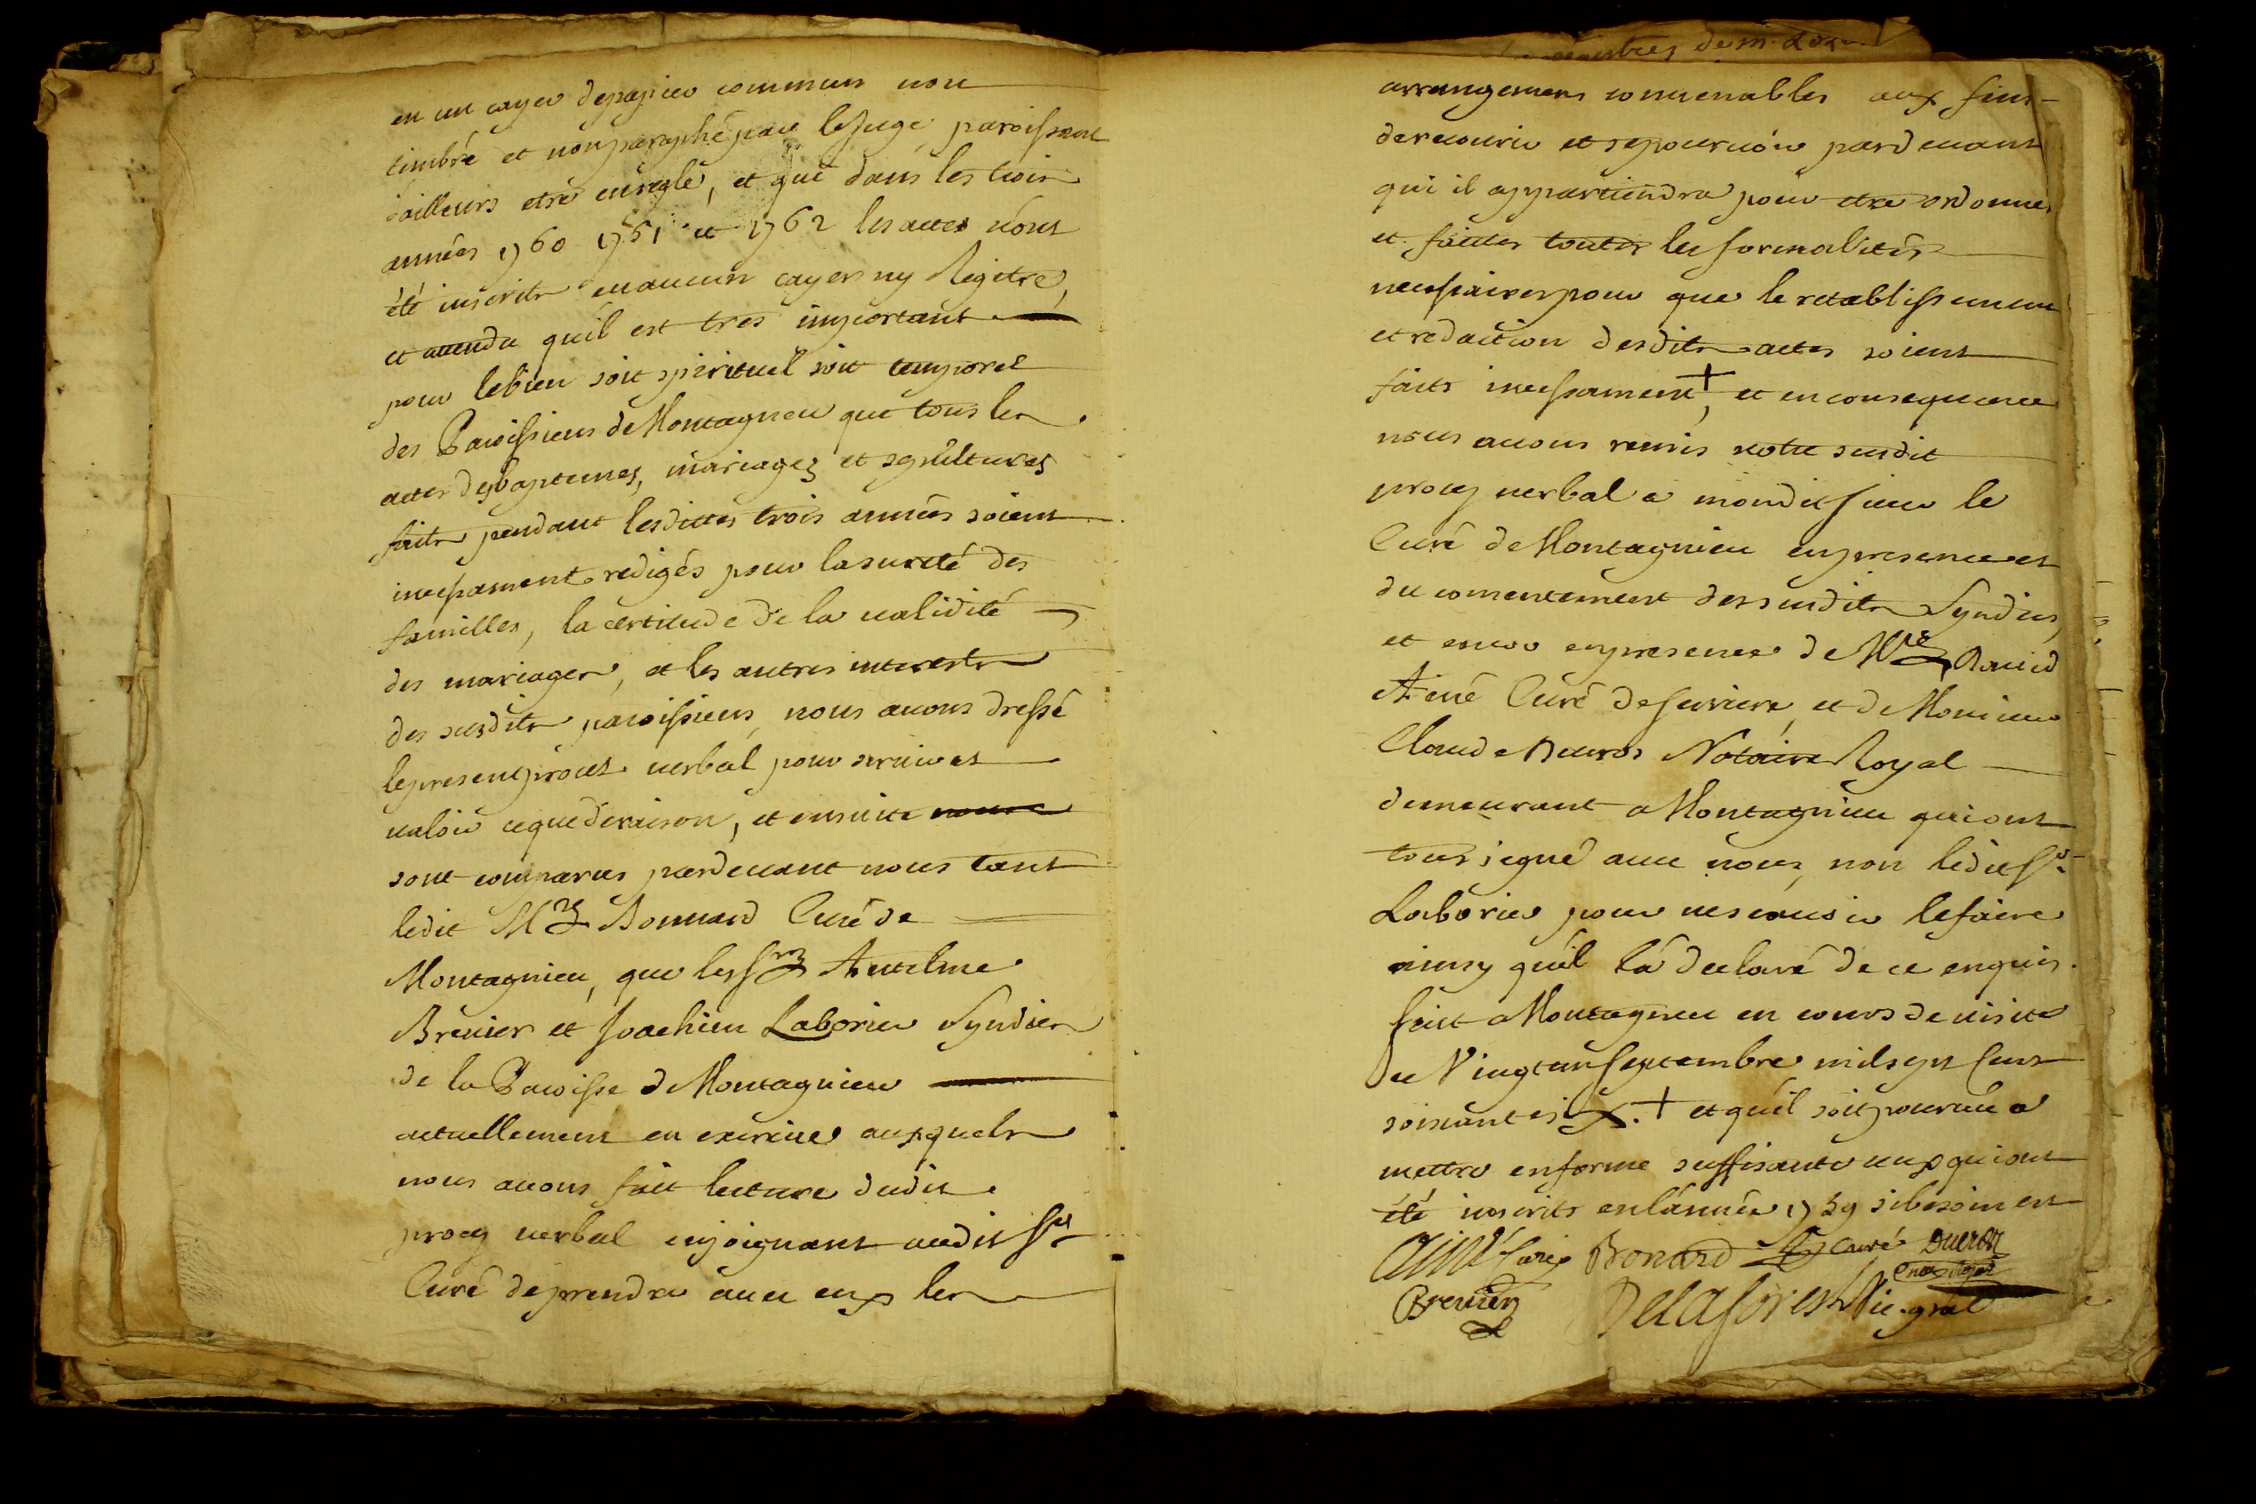 en un cayer de papier commun non
timbré et non paraphé par le Juge, paroissant
d'ailleurs etre en regle, et que dans les trois
années 1760 1761 et 1762 les actes n'ont
été inscrits en aucun cayer ny Regitre,
et attendu qu'il est tres important
pour le bien soit spirituel soit temporel
des Paroissiens de Montagneu que tous les
actes des baptemes, mariages et sepultures
faits pendant lesdittes trois années soient
incessament redigés pour la sureté des
familles, la certitude de la validité
des mariages, et les autres interests
des susdits paroissiens, nous avons dressé
le present procès verbal pour servir et
valoir ce que de raison, et ensuite
sont comparus pardevant nous tant
ledit Mre Bonnard Curé de
Montagnieu, que les Srs Antelme
Brevier et Joachim Laborier Syndics
de la Paroisse de Montagnieu
actuellement en exercice auxquels
nous avons fait lecture dudit
procez verbal enjoignant audit Sr
Curé de prendre avec eux les
arrangemens convenables aux fins
de recourir et se pourvoir pardevant
qui il appartiendra pour etre ordonnées
et faittes toutes les formalités
necessaires pour que le retablissement
et redaction desdits actes soient
faits incessament +, et en consequence
nous avons remis notre susdit
procez verbal a mondit sieur le
Curé de Montagnieu en presence et
du consentement des susdits Syndics,
et encor en presence de Mre David
Aimé Curé de Serriere, et de Monsieur
Claude Ducros Notaire Royal
demeurant a Montagnieu qui ont
tous signé avec nous, non ledit Sr
Laborier pour ne scavoir le faire
ainsy qu'il l'a declaré de ce enquis.
fait a Montagnieu en cours de visite
Le Vingt un Septembre mil sept cent
soixante six. + et qu'il soit pourvu a
mettre en forme suffisante ceux qui ont
été inscrits en l'année 1759 si besoin est
Aimé Curé Bonard Curé Ducros
Brevier Delaforest Vic. gral